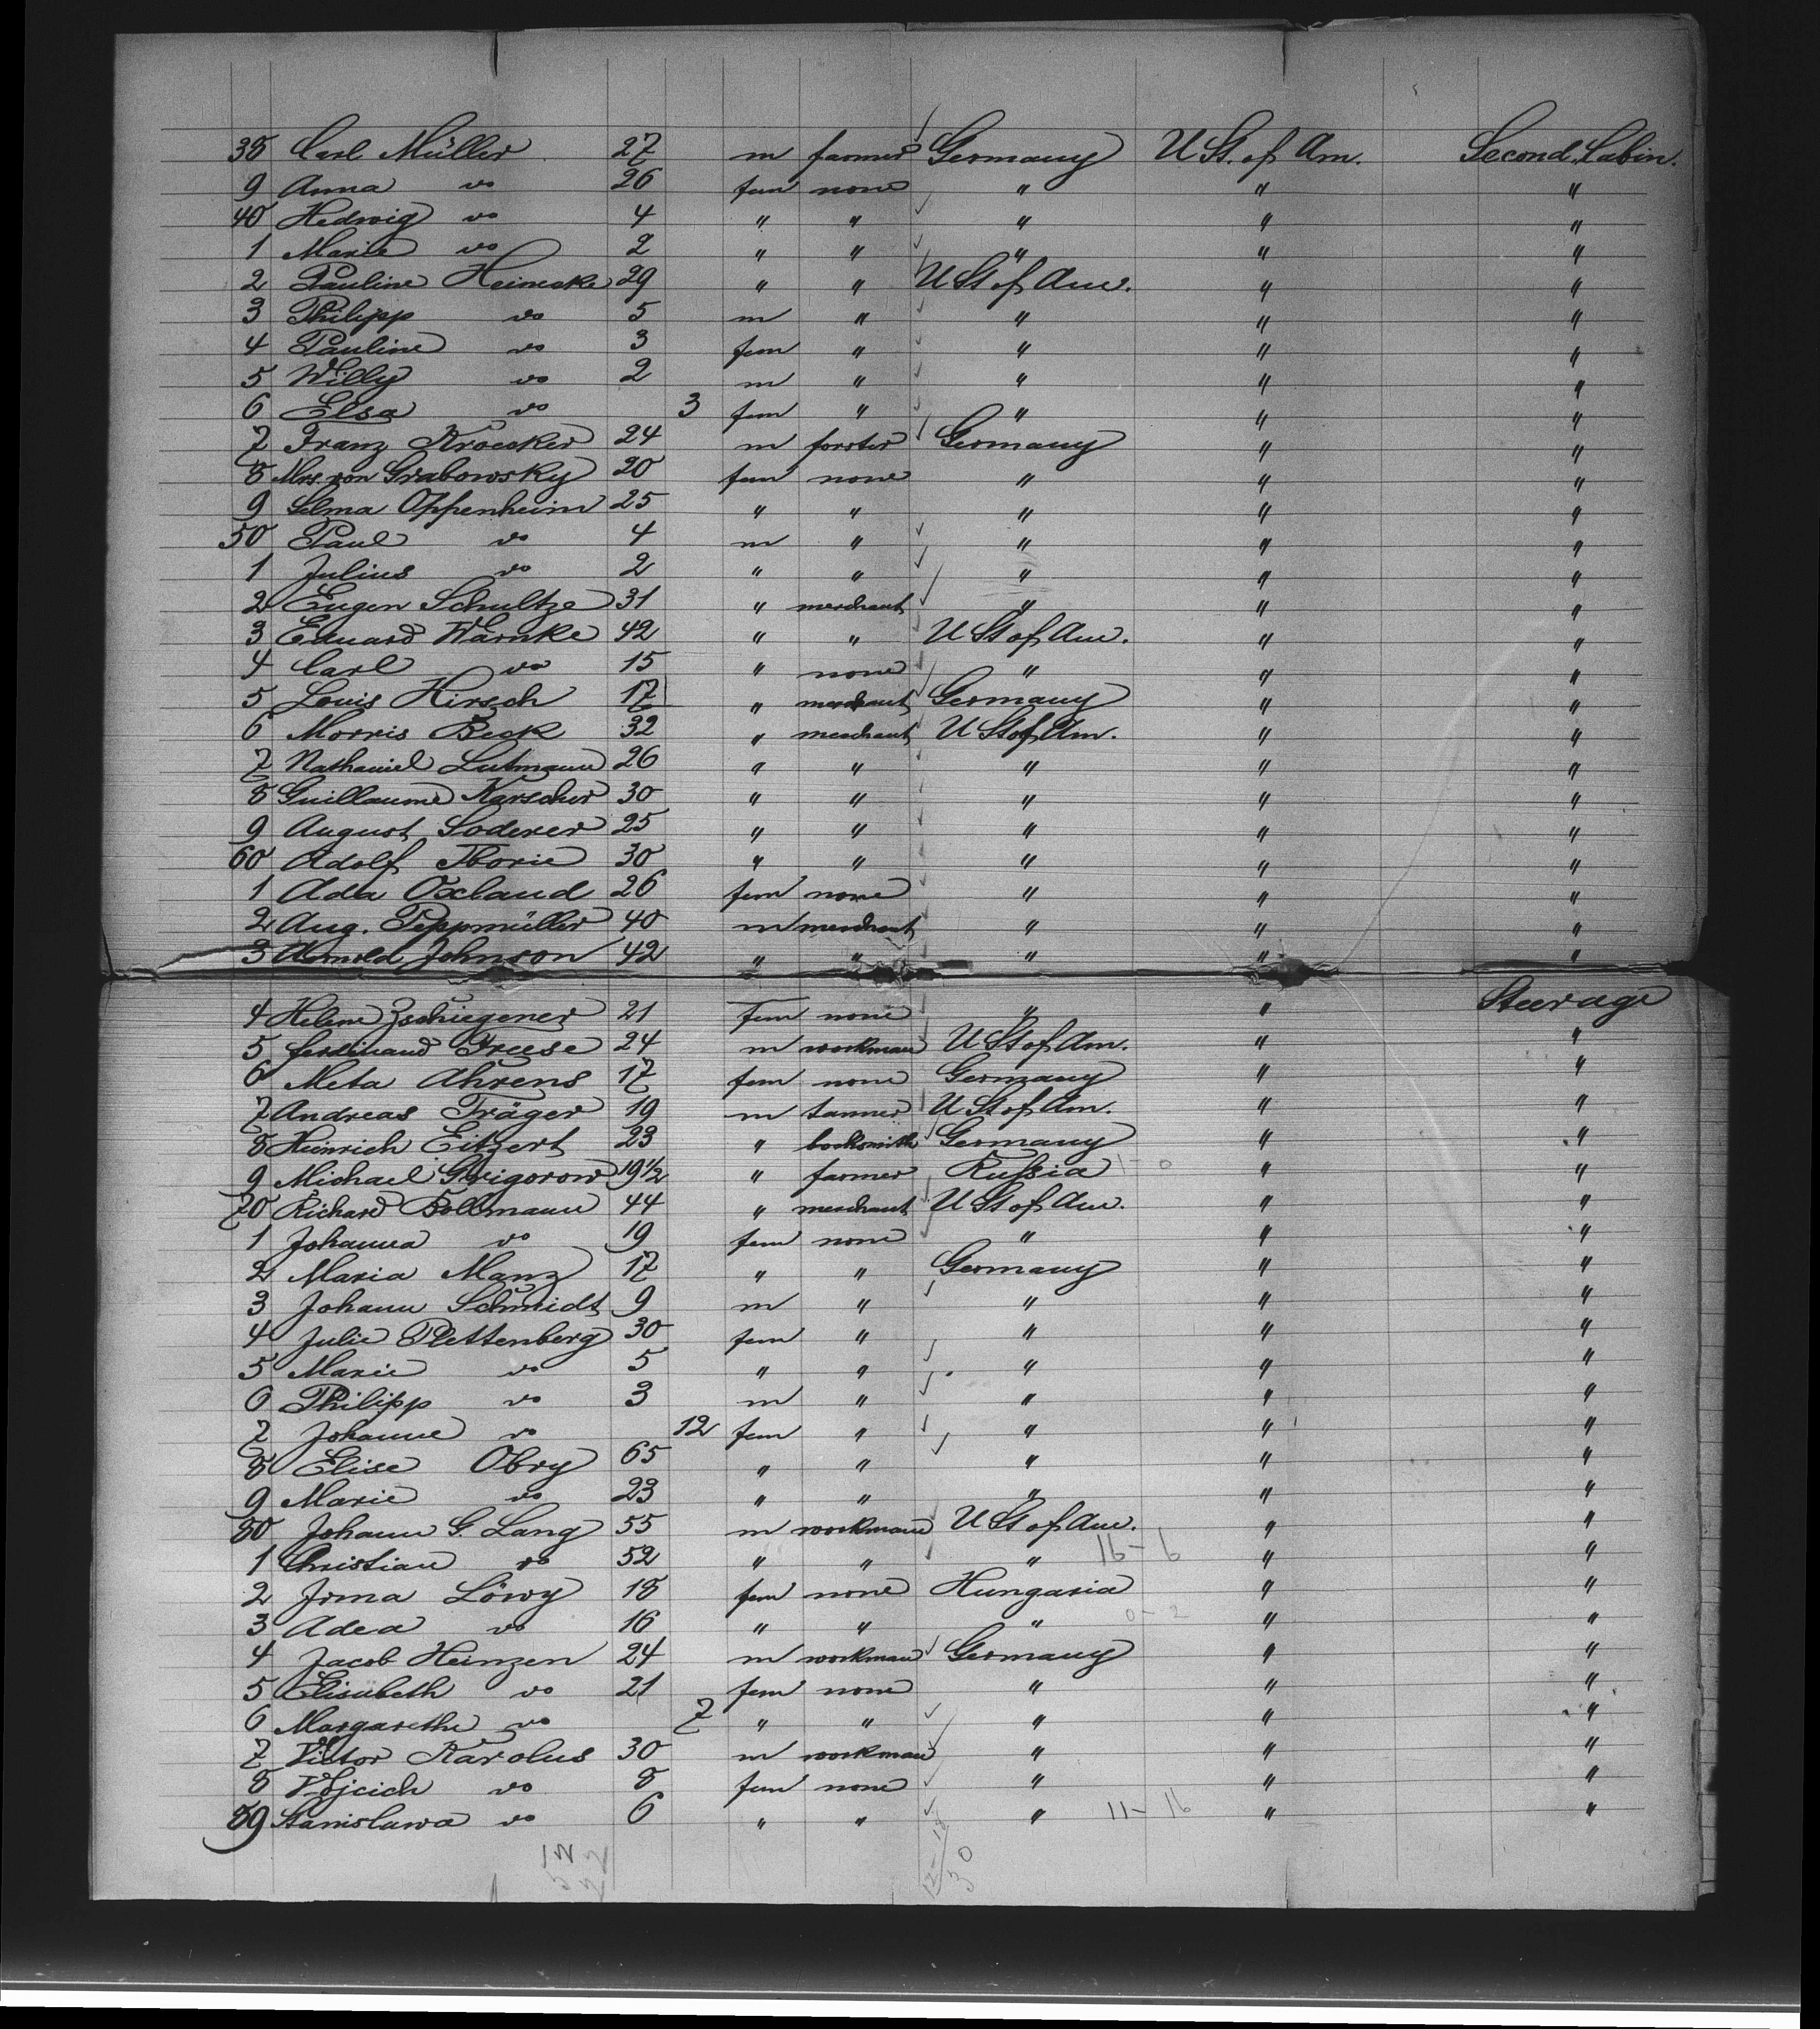 38 Carl Müller 27 m farmer Germany U St. of Am. Second Cabin.
9 Anna do 26 fem none " " "
40 Hedwig do 4 " " " " "
1 Marie do 2 " " " " "
2 Pauline Heinecke 29 " " U St of Am. " "
3 Philipp do 5 m " " " "
4 Pauline do 3 fem " " " "
5 Willy do 2 m " " " "
6 Elsa do 3 fem " " " "
7 Franz Kroecker 24 m forster Germany " "
8 Mrs. von Grabowsky 20 fem none " " "
9 Selma Oppenheim 25 " " " " "
50 Paul do 4 m " " " "
1 Julius do 2 " " " " "
2 Eugen Schultze 31 " merchant " " "
3 Eduard Warnke 42 " " U St of Am. " "
4 Carl do 15 " none " " "
5 Louis Hirsch 17 " merchant Germany " "
6 Morris Beck 32 " merchant U St of Am. " "
7 Nathaniel Lutmann 26 " " " " "
8 Guillaume Karscher 30 " " " " "
9 August Soderer 25 " " " " "
60 Adolf 30 " " " " "
1 Ada Oxland 26 fem none " " "
2 Aug. Peppmüller 40 m merchant " " "
3 Arnold Johnson 42 " " " " "
4 Helene Zschiegener 21 fem none " " Steerage
5 Ferdinand Freese 24 m workman U St of Am. " "
6 Meta Ahrens 17 fem none Germany " "
7 Andreas Träger 19 m tanner U St of Am. " "
8 Heinrich Eitzert 23 " locksmith Germany " "
9 Michael Grigorow 19½ " farmer Russia 1-0 " "
70 Richard Bollmann 44 " merchant U St of Am. " "
1 Johanna do 19 fem none " " "
2 Maria Manz 17 " " Germany " "
3 Johann Schmidt 9 m " " " "
4 Julie Plettenberg 30 fem " " " "
5 Marie do 5 " " " " "
6 Philipp do 3 m " " " "
7 Johanne do 12 fem " " " "
8 Elise Obry 65 " " " " "
9 Marie do 23 " " " " "
80 Johann G. Lang 55 m workman U St of Am. " "
1 Christian do 52 " " " 16-6 " "
2 Irma Löwy 18 fem none Hungaria " "
3 Adea do 16 " " " 0-2 " "
4 Jacob Heinzen 24 m workman Germany " "
5 Elisabeth do 21 fem none " " "
6 Margarethe do 7 " " " " "
7 Victor Karolus 30 m workman " " "
8 Wojcich do 8 fem none " " "
89 Stanislawa do 6 " " " 11-16 " "